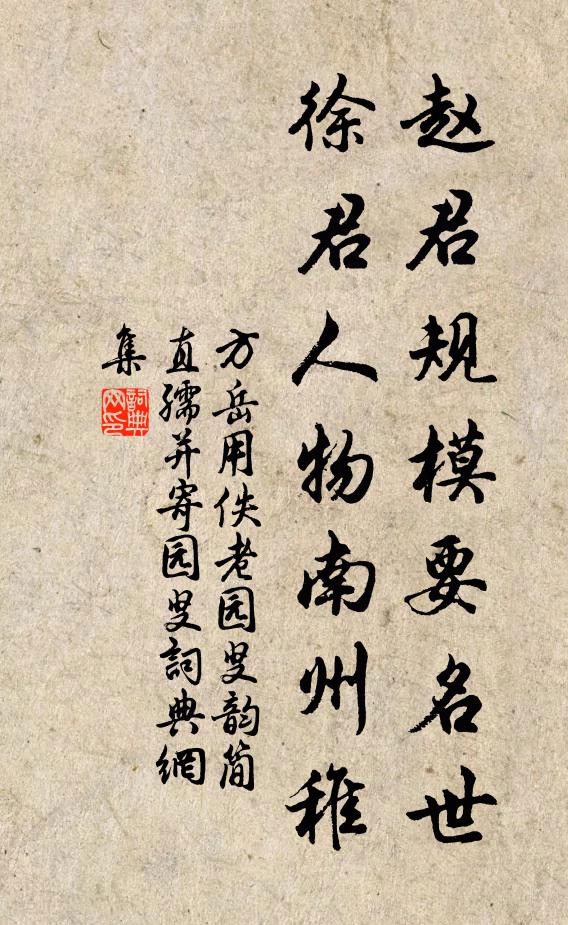 赵君规模要名世
徐君人物南州稚
方岳用佚老园叟韵简
直孺并寄园叟詞典網
集
詞典網印